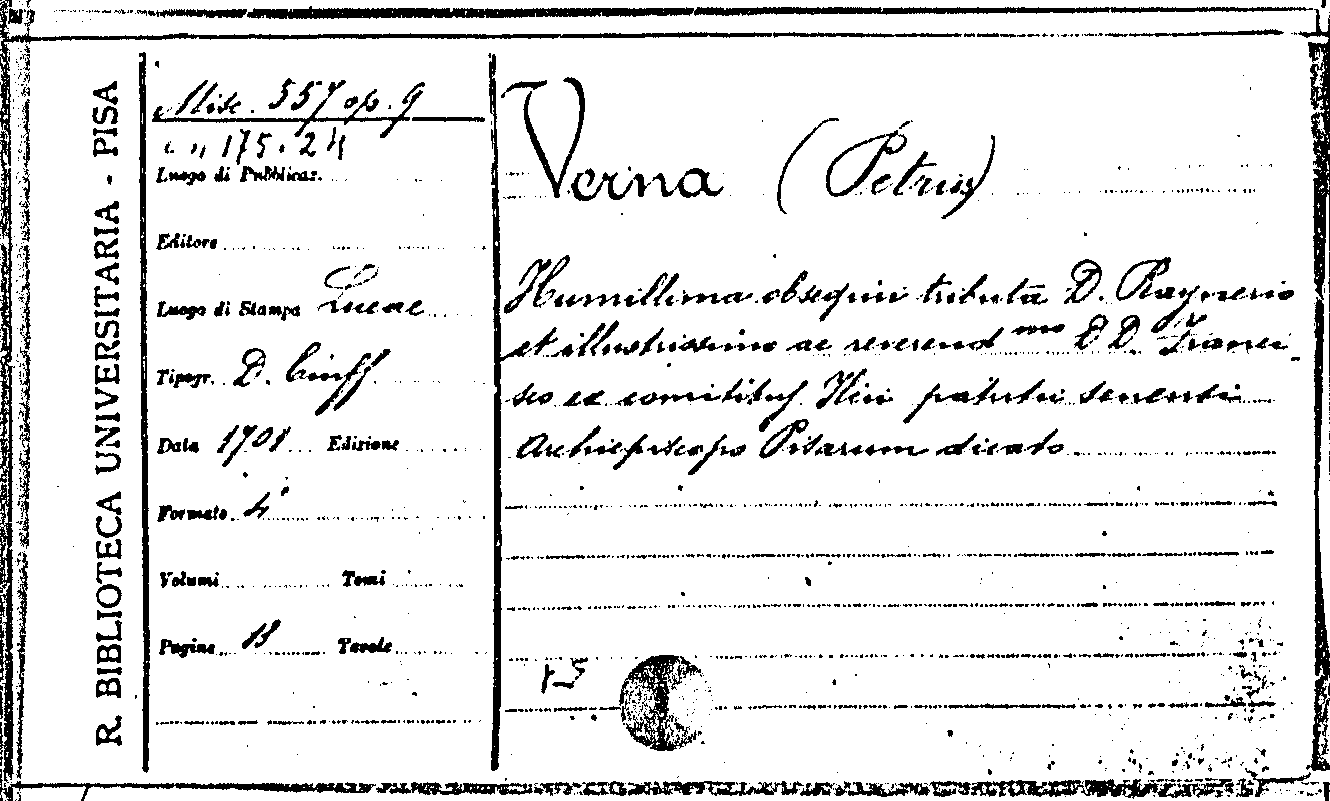 R. BIBLIOTECA UNIVERSITARIA - PISA
Misc. 557 op. 9
" " 175.24
Luogo di Pubblicaz.
Editore
Luogo di Stampa Lucae
Tipogr. D. Ciuff
Data 1701 Edizione
Formato 4°
Volumi Tomi
Pagine 13 Tavole
Verna (Petrus)
Humillima obsequii tributa D. Raynerio
et illustrissimo ac reverend mo D D. Franci-
sco ex comitibus patritii senensi
Archiepiscopo Pisarum dicato